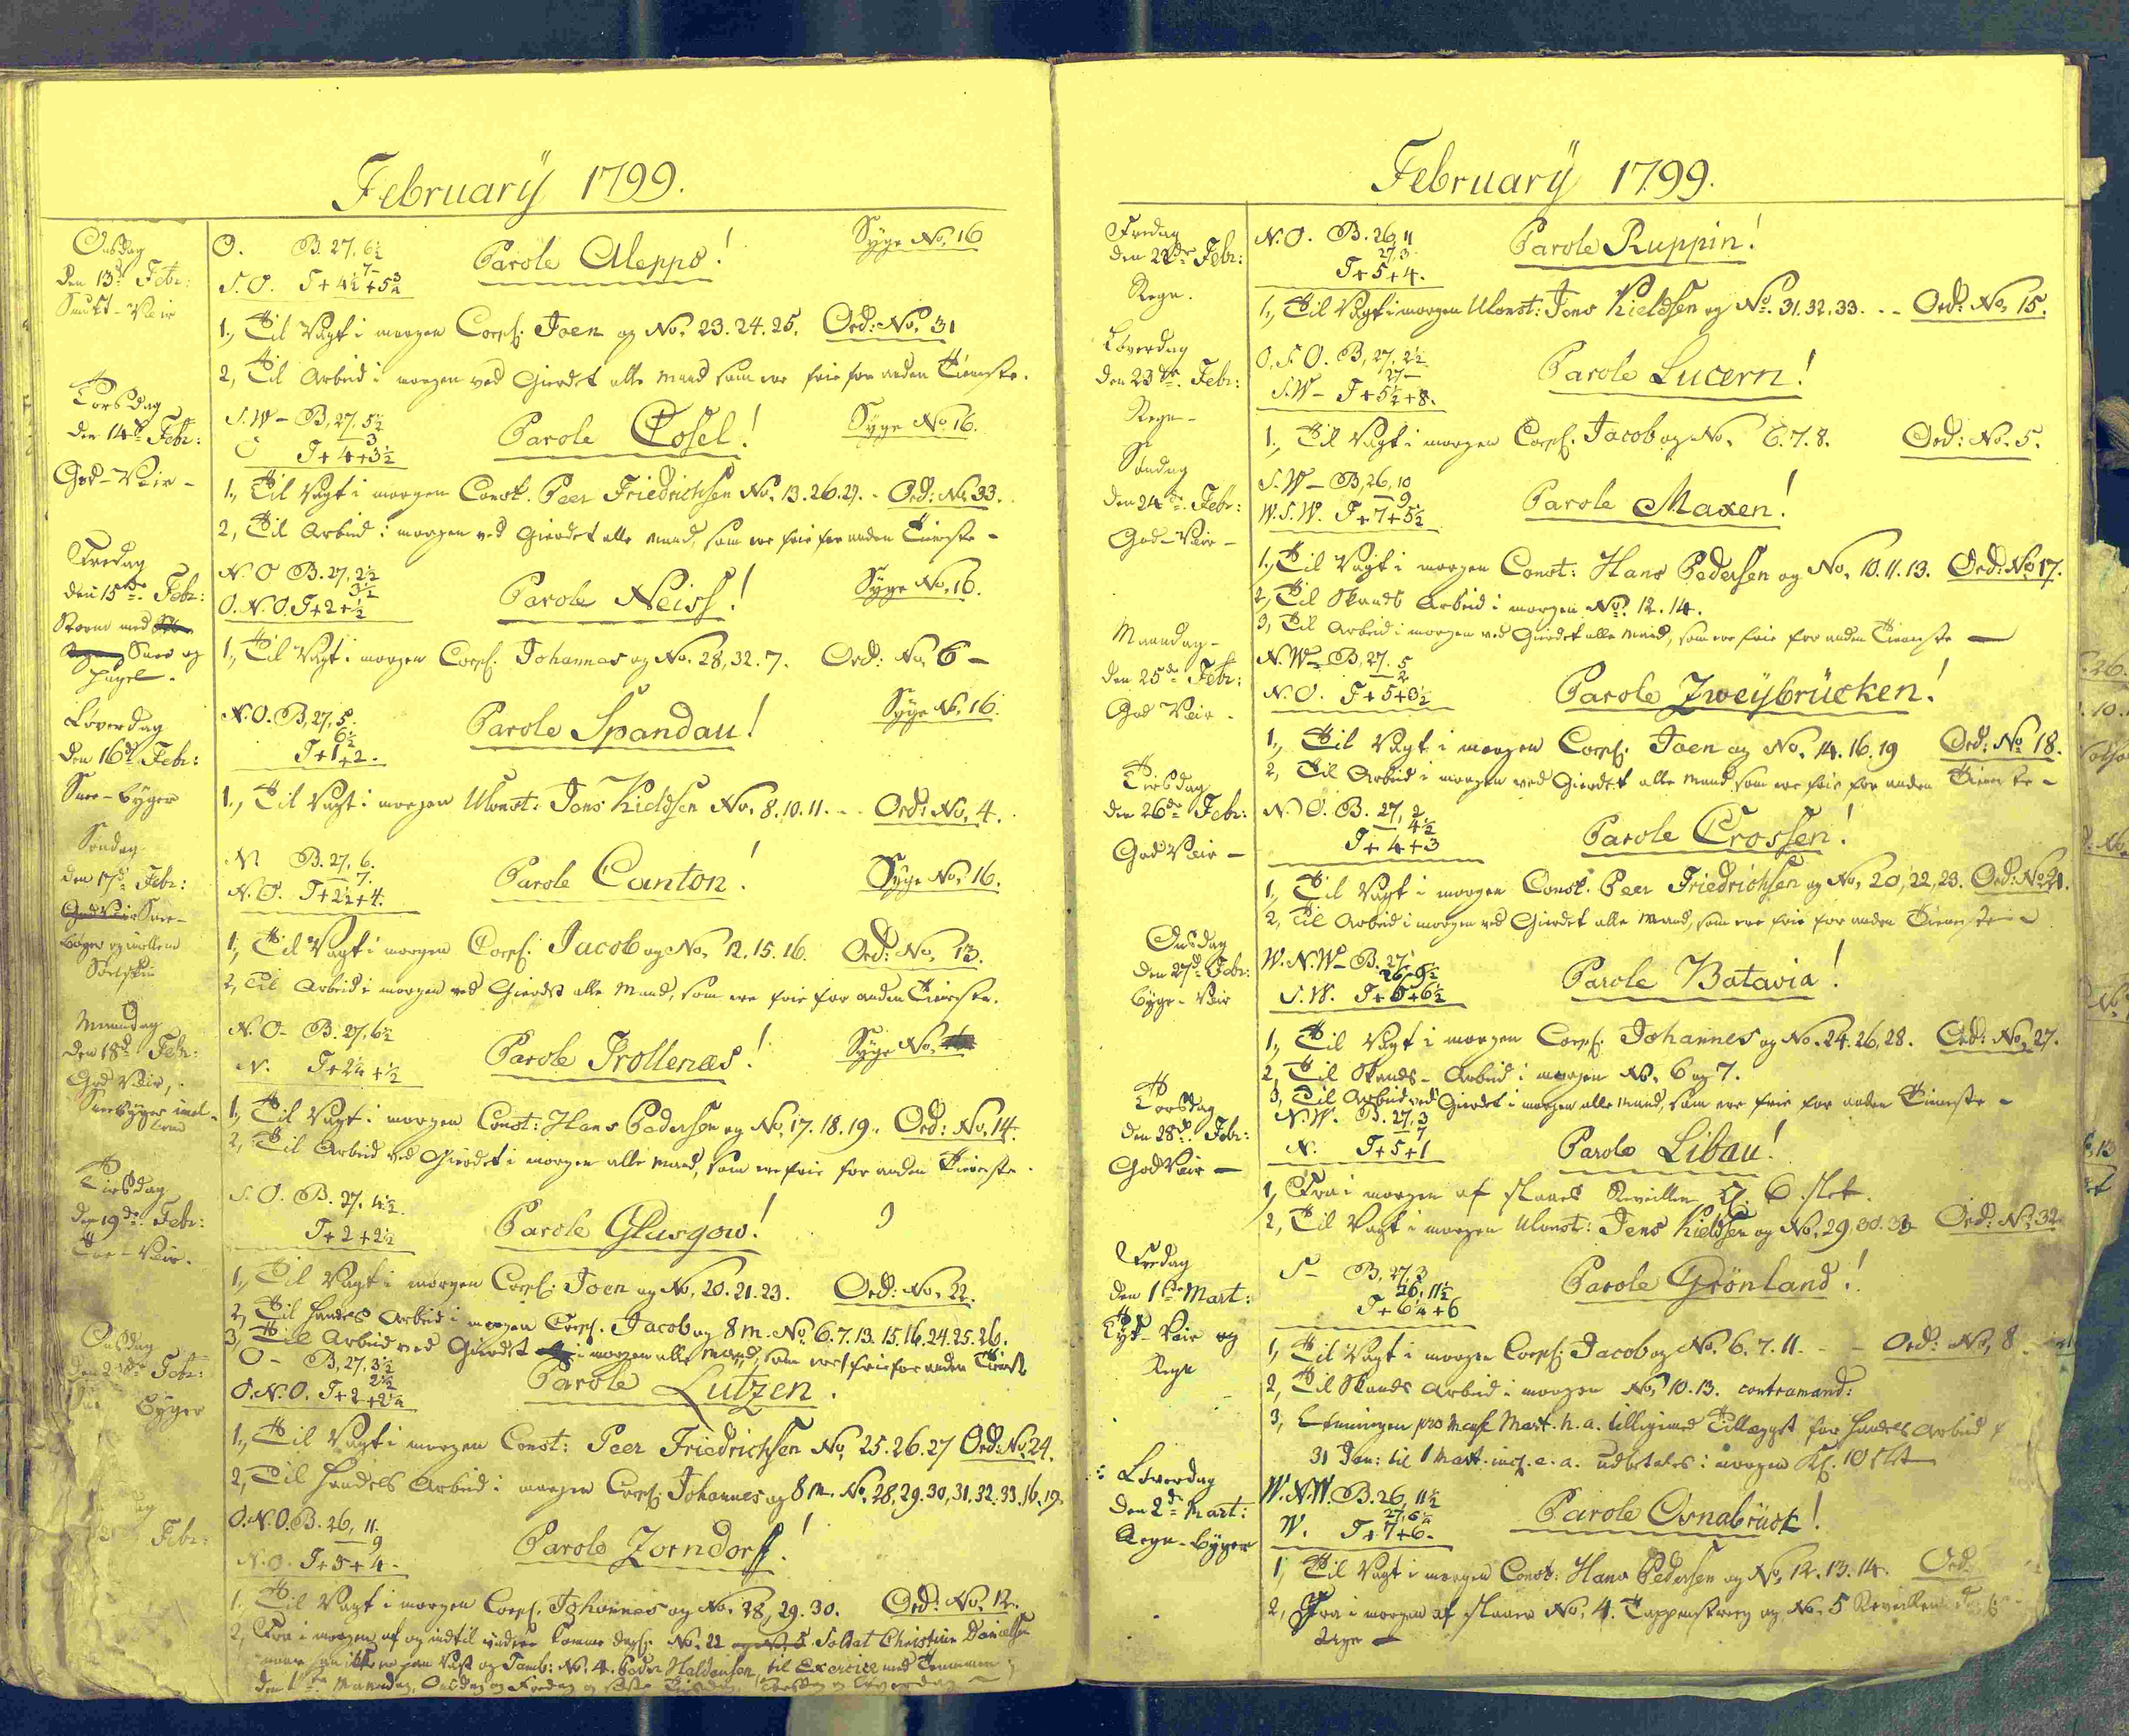 February 1799.
Onsdag
den 13de Febr:
Smukt-Veir
O. B. 27, 6½
7-
S.O. T+4½+5¾
Parole Aleppo!
Syge No. 16
1., Til Vagt i morgen Corpl. Joen og No. 23. 24. 25. Ord: No. 31
2, Til Arbeid i morgen ved Gierdet alle Mand som ere frie for anden Tieneste.
Torsdag
den 14de Febr:
God-Veir-
S.W- B, 27, 5½
3
O T+4+3½
Parole Cosel!
Syge No. 16.
1., Til Vagt i morgen Const. Peer Friedrichsen No. 13. 26. 27. - Ord: No. 33.
2, Til Arbeid i morgen ved Gierdet alle Mand, som ere frie for anden Tieneste-
Fredag
den 15de Febr:
Storm med
Snee og
Hagel.
N.O B. 27, 2½
3½
O.N.O. T+2+½
Parole Neiss!
Syge No. 16.
1., Til Vagt i morgen Corpl. Johannes og No. 28, 32. 7. Ord: No. 6-
Løverdag
den 16de Febr:
Snee-byger
N.O. B, 27, 5.
6½
T+1+2.
Parole Spandau!
Syge No. 16.
1., Til Vagt i morgen UConst: Jens Kieldsen No. 8. 10. 11. -- Ord: No. 4.
Søndag
den 17de Febr:
God Veir Snee-
byger og imellem
Soelskin
N. B. 27, 6.
7.
N.O. T+2½+4.
Parole Canton!
Syge No. 16.
1., Til Vagt i morgen Corpl. Jacob og No. 12. 15. 16. Ord: No. 13.
2, Til Arbeid i morgen ved Gierdet alle Mand, som ere frie for anden Tieneste.
Maandag
den 18de Febr:
God Veir,
Sneebyger imel-
lem
N.O- B. 27, 6½
N. T+2¼+½
Parole Trollenæs!
Syge No.
1., Til Vagt i morgen Const: Hans Pedersen og No. 17. 18. 19. Ord: No. 14.
2, Til Arbeid ved Gierdet i morgen alle Mand, som ere frie for anden Tieneste.
Tirsdag
den 19de Febr:
Toe-Veir.
S.O. B. 27, 4½.
T+2+2½
Parole Glasgow!
1., Til Vagt i morgen Corpl. Joen og No. 20. 21. 23. Ord: No. 22.
2, Til Handels Arbeid i morgen Corpl. Jacob og 8 m. No. 6. 7. 13. 15. 16. 24. 25. 26.
3, Til Arbeid ved Gierdet i morgen alle Mand, som ere frie for anden Tienest
Onsdag
Febr:
Byger
O- B, 27, 3½
2½
O.N.O. T+2+2¼
Parole Lutzen.
1., Til Vagt i morgen Const: Peer Friedrichsen No. 25. 26. 27 Ord: No. 24.
2, Til Handels Arbeid i morgen Corpl. Johannes og 8 m. No. 28, 29. 30, 31. 32. 33. 16. 19.
Febr:
O.N.O. B. 26, 11.
9
N.O. T+5+4-
Parole Zorndorf!
1. Til Vagt i morgen Corpl. Johannes og No. 28, 29. 30. Ord: No. 12.
2, Fra i morgen af og indtil videre kommer dagl. No. 22 og No. 5 Soldat Christian Danielsen
og Tamb: No. 4. Peder Haldansen, til Exercice med Trommen
Maandag, Onsdag og Fredag og Tirsdag, Torsdag og Løverdag
February 1799.
Fredag
den 22de Febr:
Regn.
N.O. B. 26, 11
27, 3.
T+5+4.
Parole Ruppin!
1., Til Vagt i morgen UConst: Jens Kieldsen og No. 31. 32. 33. -- Ord: No. 15.
Løverdag
den 23de Febr:
Regn-
O.S.O. B, 27, 2½
27-
S.W- T+5½+8.
Parole Lucern!
1., Til Vagt i morgen Corpl. Jacob og No. 6. 7. 8. Ord: No. 5.
Søndag
den 24de Febr:
God-Veir-
S.W- B, 26, 10
9
W.S.W. T+7+5½
Parole Maxen!
1., Til Vagt i morgen Const: Hans Pedersen og No. 10. 11. 13. Ord: No. 17.
2, Til Skands Arbeid i morgen No. 12. 14.
3, Til Arbeid i morgen ved Gierdet alle Mand, som ere frie for anden Tieneste-
Maandag-
den 25de Febr:
God Veir-
N.W- B, 27. 5
2
N.O. T+5+3½
Parole Zweybrücken!
1., Til Vagt i morgen Corpl. Joen og No. 14. 16. 19 Ord: No. 18.
2, Til Arbeid i morgen ved Gierdet alle Mand, som ere frie for anden Tieneste-
Tirsdag
den 26de Febr:
God Veir-
N.O. B. 27, 2
4½
T+4+3
Parole Crossen!
1., Til Vagt i morgen Const. Peer Friedrichsen og No. 20, 22, 23. Ord: No. 21.
2, Til Arbeid i morgen ved Gierdet alle Mand, som ere frie for anden Tieneste-
Onsdag
den 27de Febr:
Byge-Veir
W.N.W- B. 27.
26, 9½
S.W. T+5+6½
Parole Batavia!
1., Til Vagt i morgen Corpl. Johannes og No. 24. 26. 28. Ord: No. 27.
2, Til Skands-Arbeid i morgen No. 6 og 7.
3, Til Arbeid ved Gierdet i morgen alle Mand, som ere frie for anden Tieneste-
Torsdag
den 28de Febr:
God Veir-
N.W. B. 27, 3
7
N. T+5+1
Parole Libau!
1, Fra i morgen af slaaes Reveillen Kl. 6 slet.
2, Til Vagt i morgen UConst: Jens Kieldsen og No. 29, 30. 33 Ord: No. 32
Fredag
den 1ste Mart:
Tyk-Veir og
Regn
S- B, 27, 3
26, 11½
T+6¼+6
Parole Grönland!
1, Til Vagt i morgen Corpl. Jacob og No. 6. 7. 11. - - Ord: No. 8
2, Til Skands Arbeid i morgen No. 10. 13. contramand:
3, Lønningen pro Mart. h. a. tilligemed Tillægget for Handels Arbeid
31 Jan: til 1 Mart. incl. a. a. udbetales i morgen Kl. 10 slet-
Løverdag
den 2de Mart:
Regn-byger
W.N.W. B. 26, 11½
27, 5¼
W. T+7+6-
Parole Osnabrück!
1, Til Vagt i morgen Const: Hans Pedersen og No. 12. 13. 14. Ord:
2, Fra i morgen af slaaer No. 4. Tappenstreeg og No. 5 Reveillen
Uge-